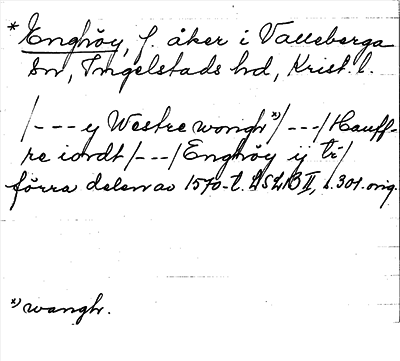 * Enghöy, f. åker i Valleberga
sn, Ingelstads hd, Krist. l.
/--- y Westre wongh *)/---/Hauff-
re iordt /---/ Enghöy ij tr/
förra delen av 1570-t. LSLB II, s. 301. orig.
*) wangh.